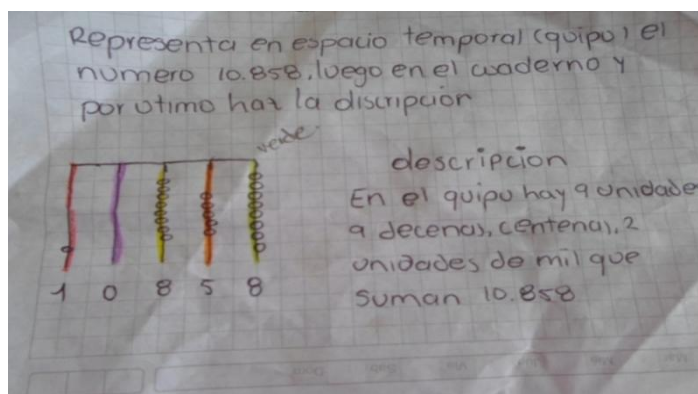 Representa en espacio temporal (quipu) el
numero 10.858, luego en el cuaderno y
por utimo haz la discripción
verde
descripcion
En el quipu hay 9 unidade
9 decenas, centenas, 2
unidades de mil que
suman 10.858
1 0 8 5 8